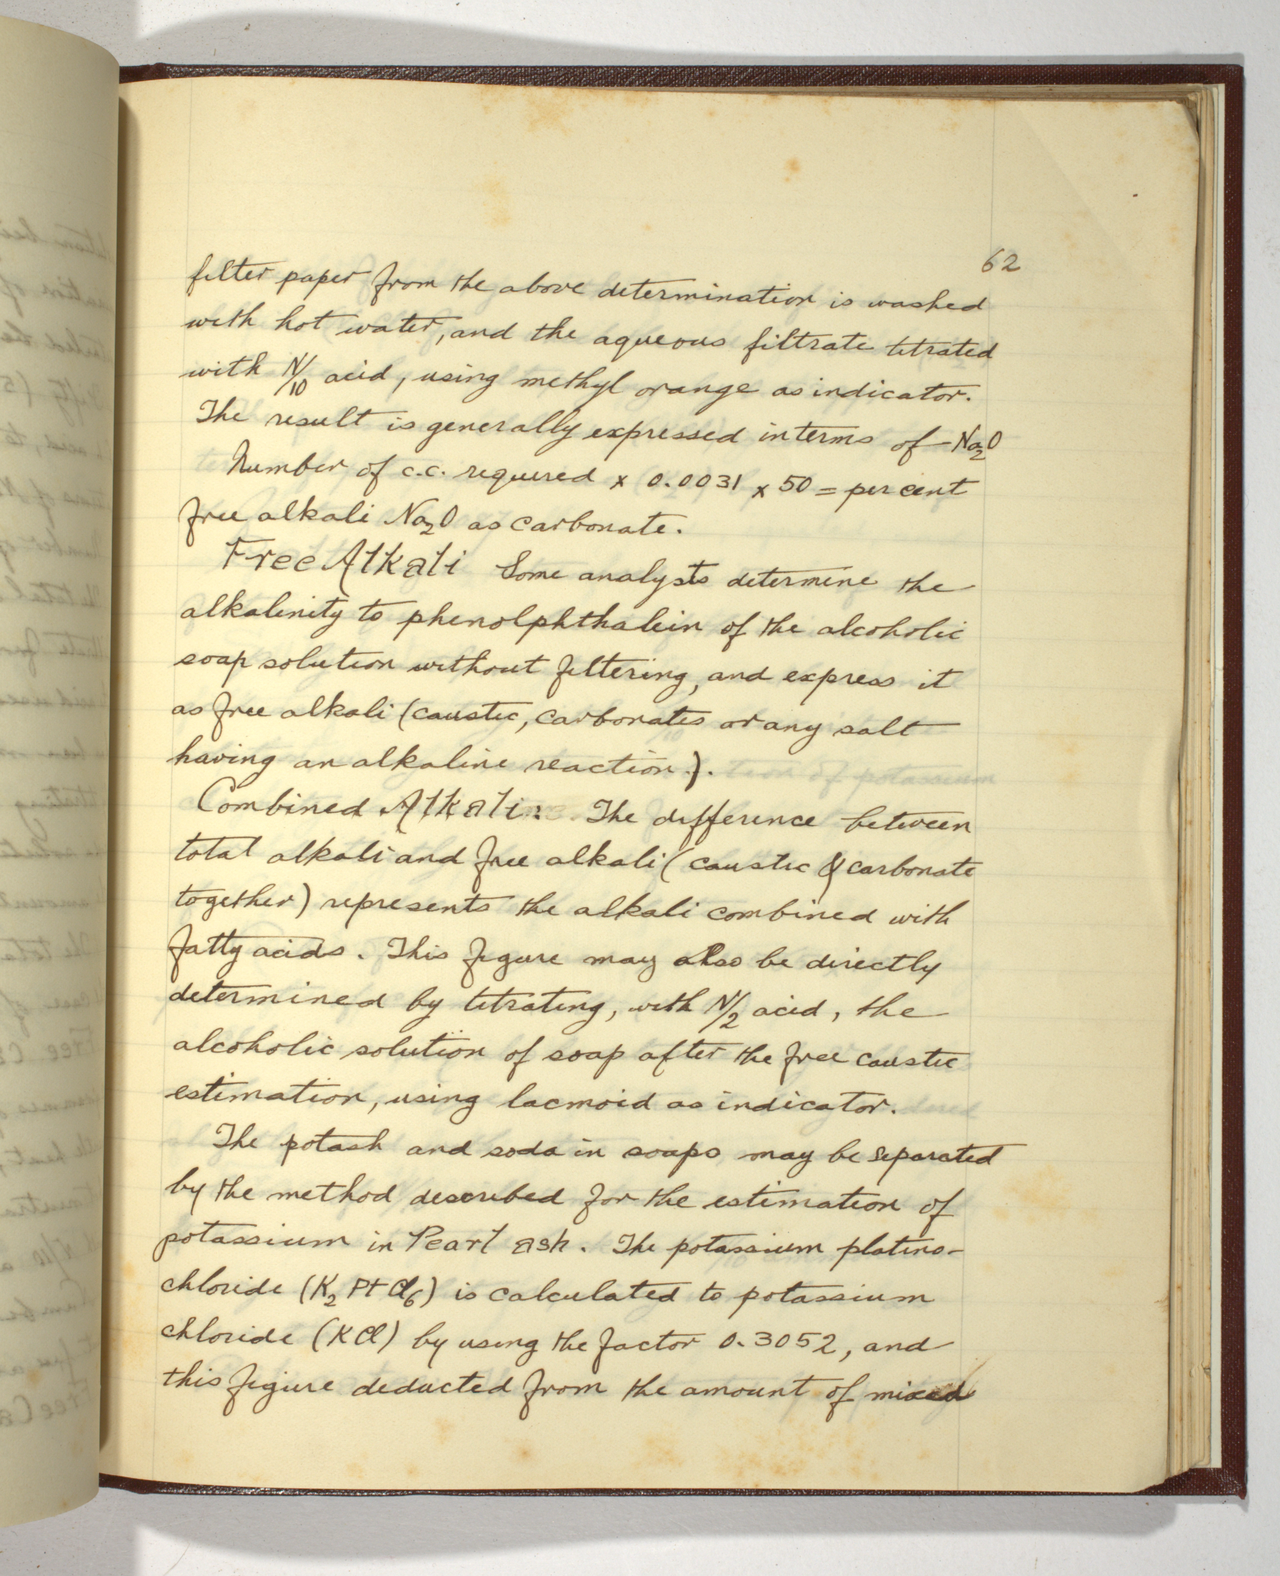 62
filter paper from the above determination is washed
with hot water, and the aqueous filtrate titrated
with N/10 acid, using methyl orange as indicator.
The result is generally expressed in terms of Na2O
Number of c.c. required x 0.0031 x 50 = per cent
free alkali Na2O as carbonate.
Free Alkali Some analysts determine the
alkalinity to phenolphthalein of the alcoholic
soap solution without filtering, and express it
as free alkali (caustic, carbonates or any salt
having an alkaline reaction).
Combined Alkali: The difference between
total alkali and free alkali (caustic & carbonate
together) represents the alkali combined with
fatty acids. This figure may also be directly
determined by titrating, with N/2 acid, the
alcoholic solution of soap after the free caustic
estimation, using lacmoid as indicator.
The potash and soda in soaps may be separated
by the method described for the estimation of
potassium in Pearl ash. The potassium platino-
chloride (K2 Pt Cl6) is calculated to potassium
chloride (KCl) by using the factor 0.3052, and
this figure deducted from the amount of mixed